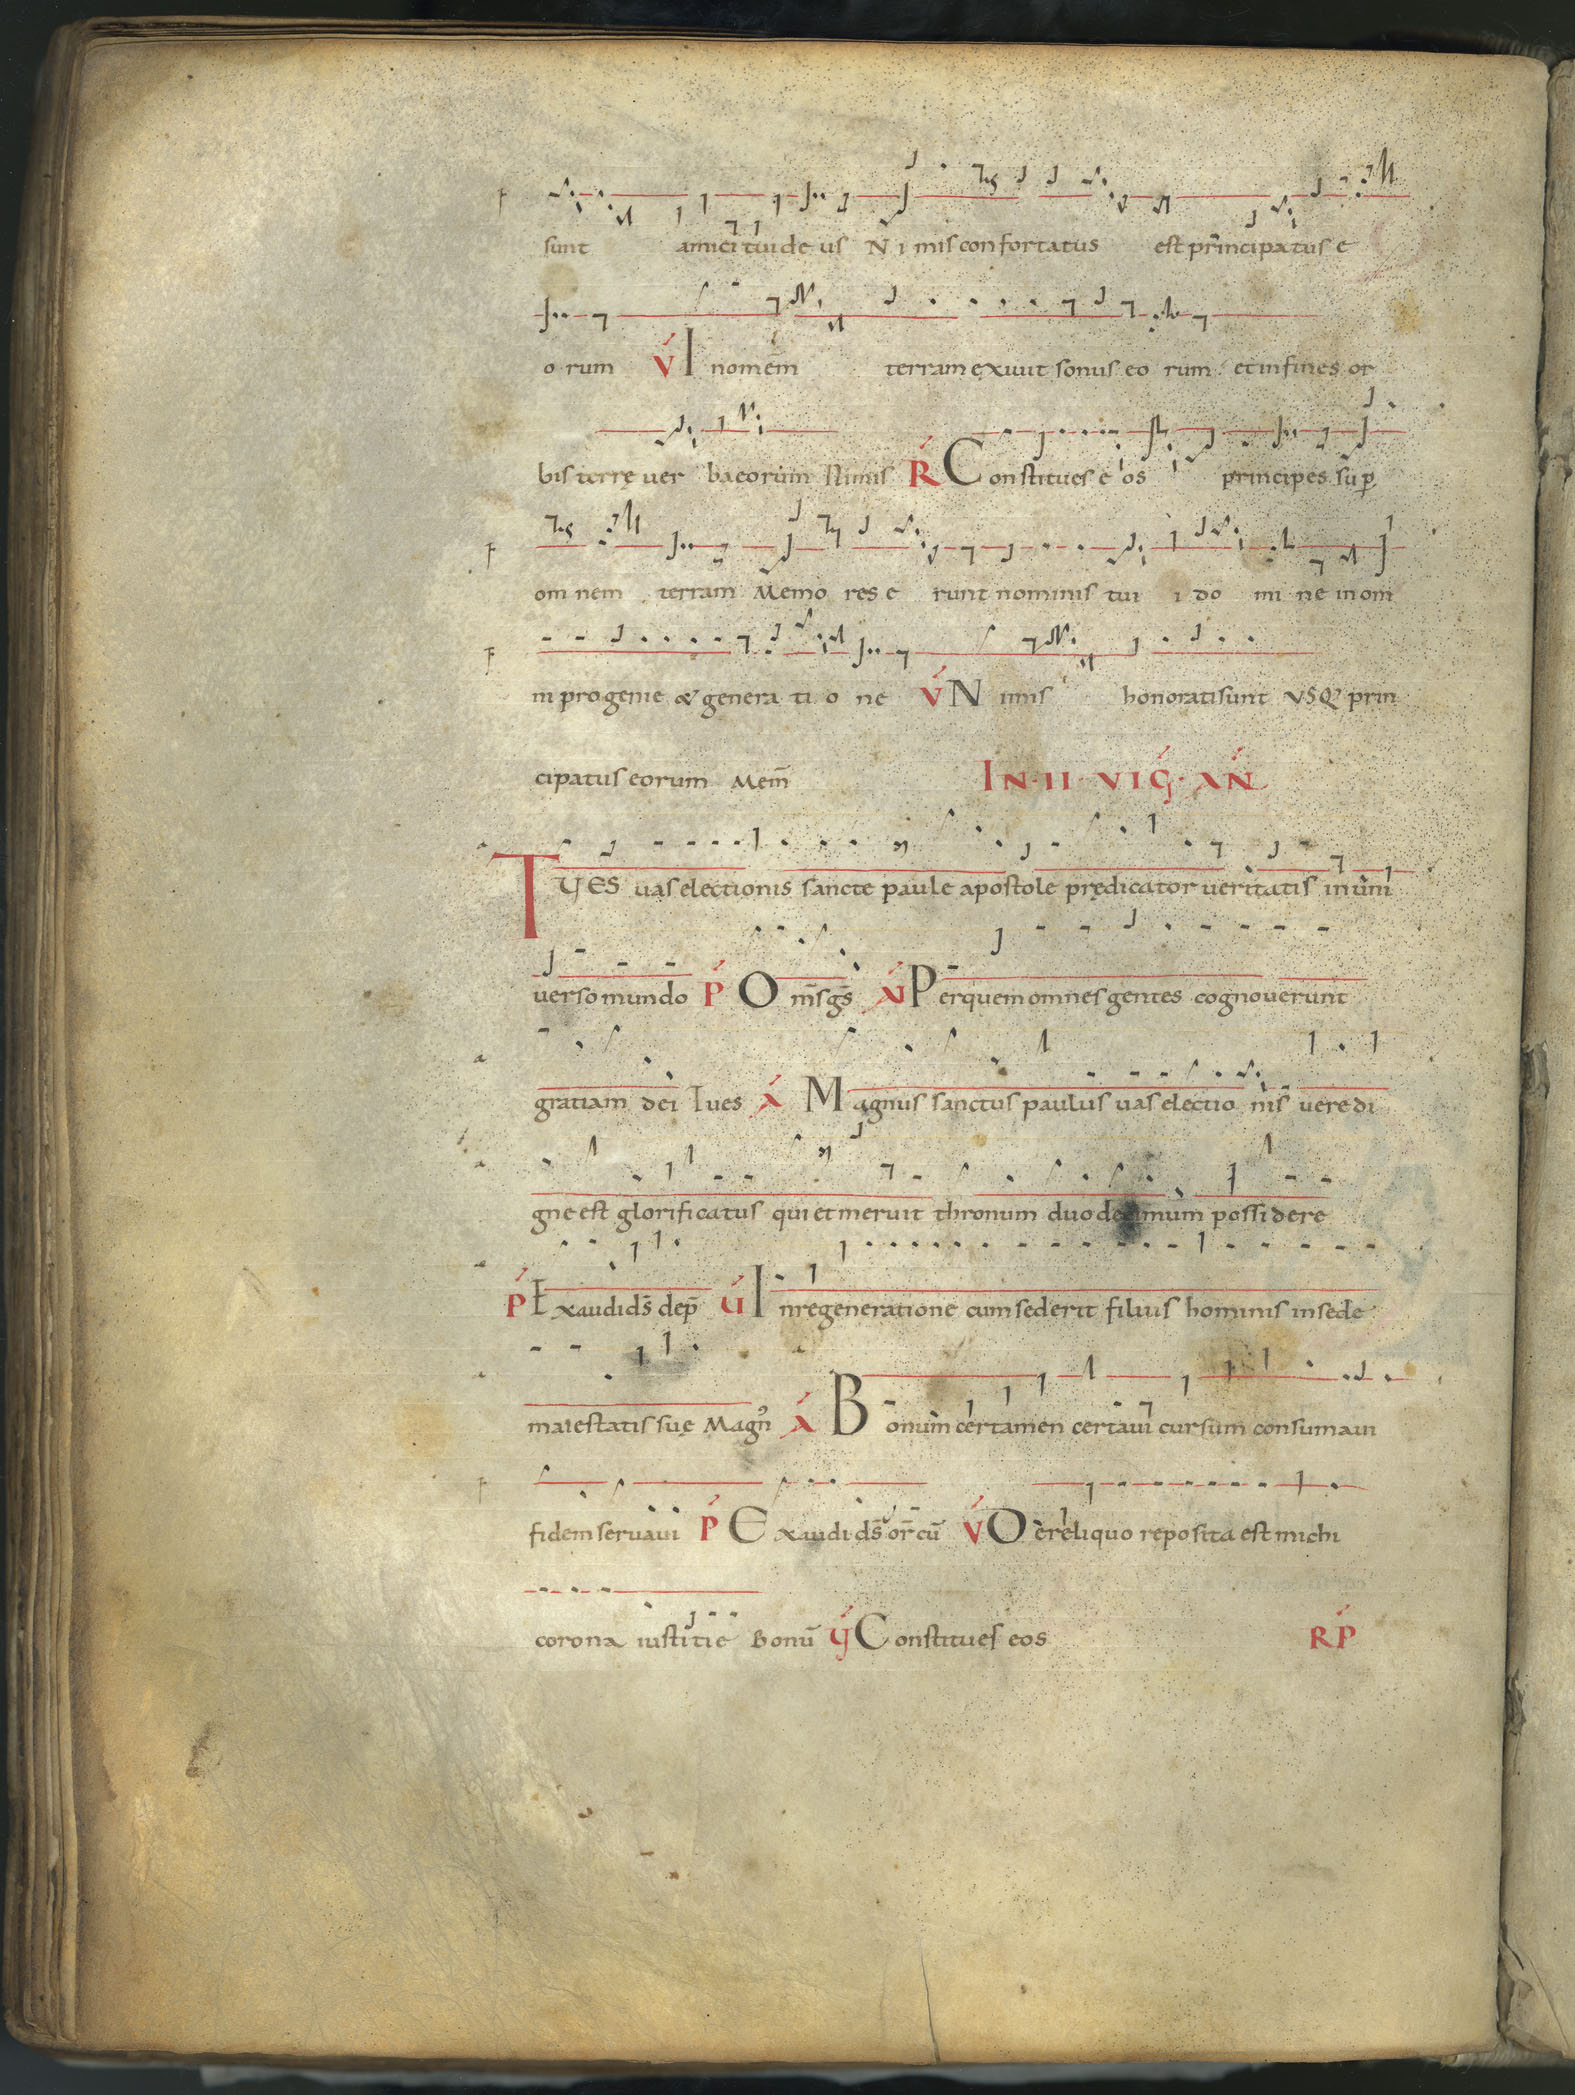 sunt amici tui de us N i mis con fortatus est principatus e
o rum V I n omem terram exiuit sonus eo rum et in fines or
bis terrę uer ba eorum Nimis R Constitues e os principes sup
om nem terram Memo res e runt nominis tui i do mi ne in om
ni progenie & genera ti o ne V N imis honorati sunt VSQ prin
cipatus eorum Mem̄ IN · II · VIG · AN
TU ES uas electionis sancte paule apostole prędicator ueritatis in uni
uerso mundo P O m̄s gs̄ V Per quem omnes gentes cognouerunt
gratiam dei Tu es A Magnus sanctus paulus uas electio nis uere di
gne est glorificatus qui et meruit thronum duodecimum possidere
P Exaudi ds̄ dep̄ U In regeneratione cum sederit filius hominis in sede
maiestatis suę Magn A Bonum certamen certaui cursum consumaui
fidem seruaui P Exaudi ds̄ or̄ cū V De reliquo reposita est michi
corona iustitie Bonū V Constitues eos RP